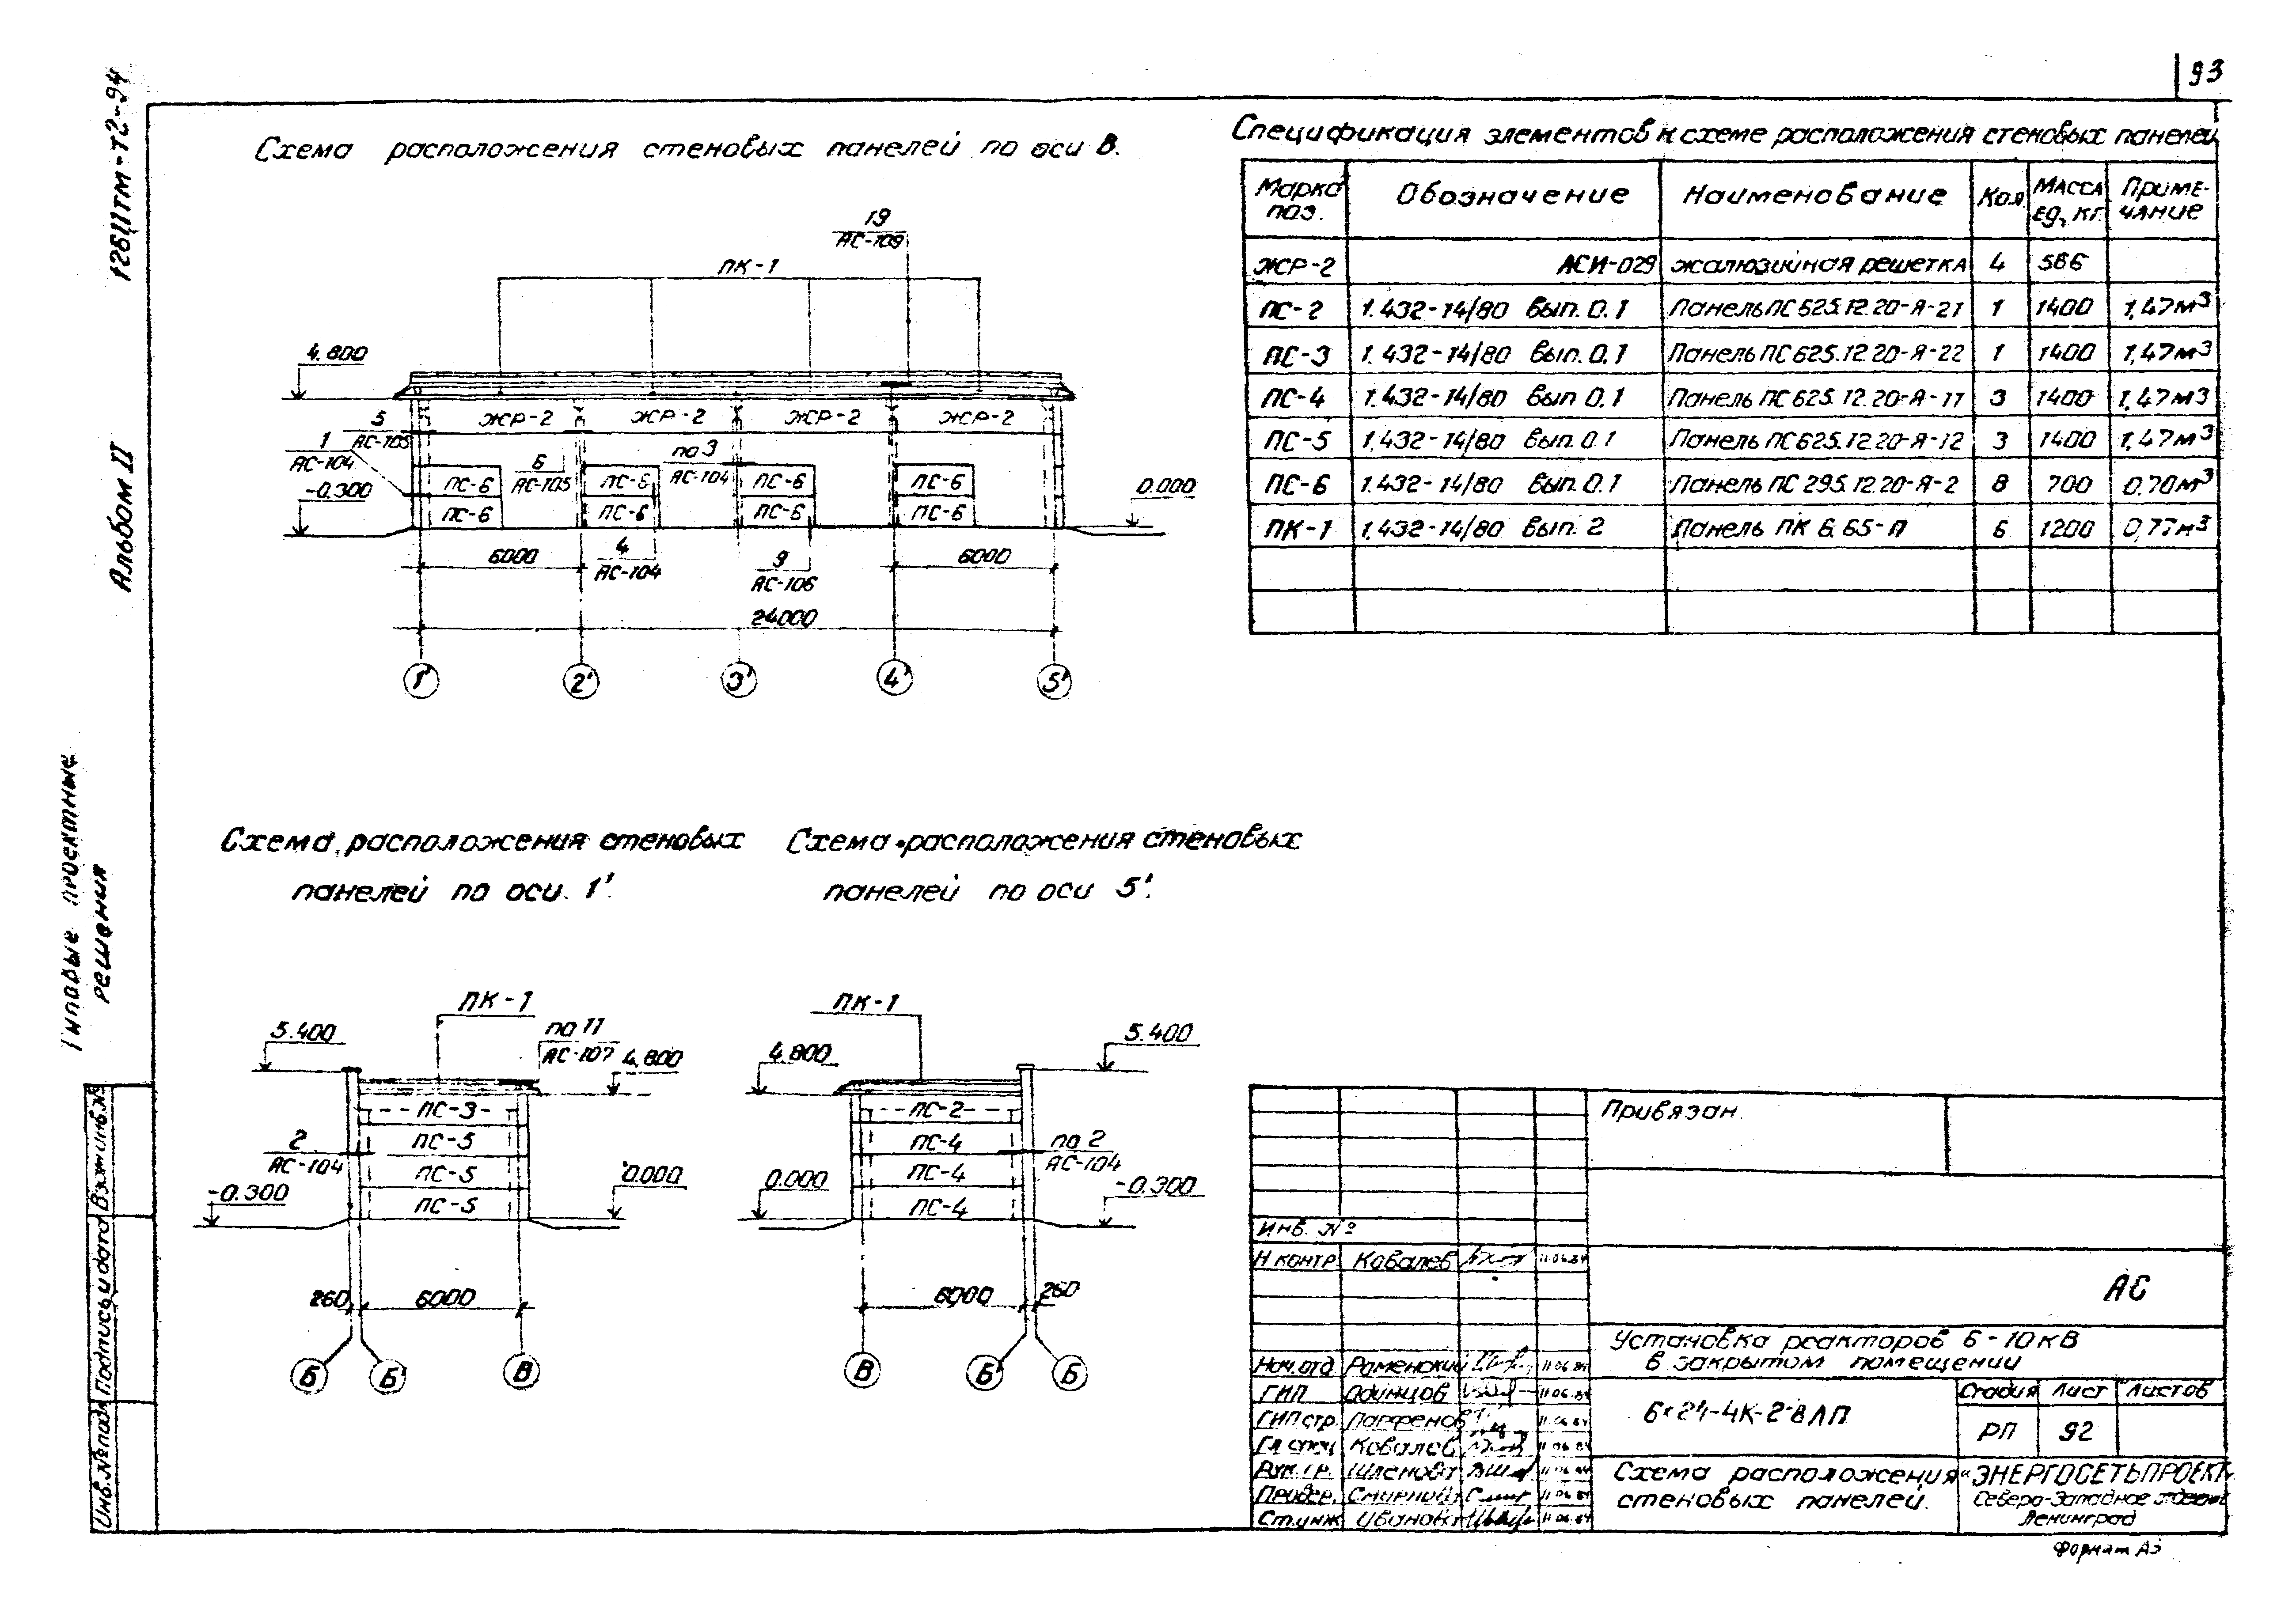 93
12611тм-т2-94
Альбом II
Типовые проектные
решения
Схема расположения стеновых панелей по оси В.
19
АС-109
ПК-1
4.800
5
АС-105
1
АС-104
-0.300
ЖР-2 ЖР-2 ЖР-2 ЖР-2
6
АС-105
по 3
АС-104
ПС-6 ПС-6 ПС-6 ПС-6
ПС-6 ПС-6 ПС-6 ПС-6
0.000
6000
4
АС-104
9
АС-106
6000
24000
1' 2' 3' 4' 5'
Спецификация элементов к схеме расположения стеновых панелей
Марка поз. Обозначение Наименование Кол Масса ед, кг. Приме-чание
ЖР-2 АСИ-029 жалюзийная решетка 4 566
ПС-2 1.432-14/80 Вып. 0.1 Панель ПС 625.12.20-Я-21 1 1400 1,47м³
ПС-3 1.432-14/80 Вып. 0.1 Панель ПС 625.12.20-Я-22 1 1400 1,47м³
ПС-4 1.432-14/80 Вып 0.1 Панель ПС 625.12.20-Я-11 3 1400 1,47м3
ПС-5 1.432-14/80 Вып. 0.1 Панель ПС 625.12.20-Я-12 3 1400 1,47м³
ПС-6 1.432-14/80 Вып. 0.1 Панель ПС 295.12.20-Я-2 8 700 0.70м³
ПК-1 1.432-14/80 Вып. 2 Панель ПК 6.65-П 6 1200 0,77м³
Схема расположения стеновых
панелей по оси 1'.
ПК-1
5.400
по 11
АС-107
4.800
ПС-3
ПС-5
ПС-5
ПС-5
2
АС-104
-0.300
0.000
260 6000
Б Б' В
Схема расположения стеновых
панелей по оси 5'.
ПК-1
4.800
5.400
ПС-2
ПС-4
ПС-4
ПС-4
по 2
АС-104
0.000
-0.300
6000 260
В Б' Б
Взам инв.№
Подпись и дата
Инв.№ подл
Привязан.
Инв. №
Н контр Ковалев 11.06.84
АС
Установка реакторов 6-10кВ
в закрытом помещении
Нач.отд. Раменский 11.06.84
ГИП Одинцов 11.06.84
ГИП стр. Парфенов 11.06.84
Гл спец Ковалев 11.06.84
Рук. гр. Шленова 11.06.84
Провер. Смирнова 11.06.84
Ст.инж Иванова 11.06.84
6×24-4К-2-ВЛП
Стадия Лист Листов
РП 92
Схема расположения
стеновых панелей.
«ЭНЕРГОСЕТЬПРОЕКТ»
Северо-Западное отделение
Ленинград
Формат А3